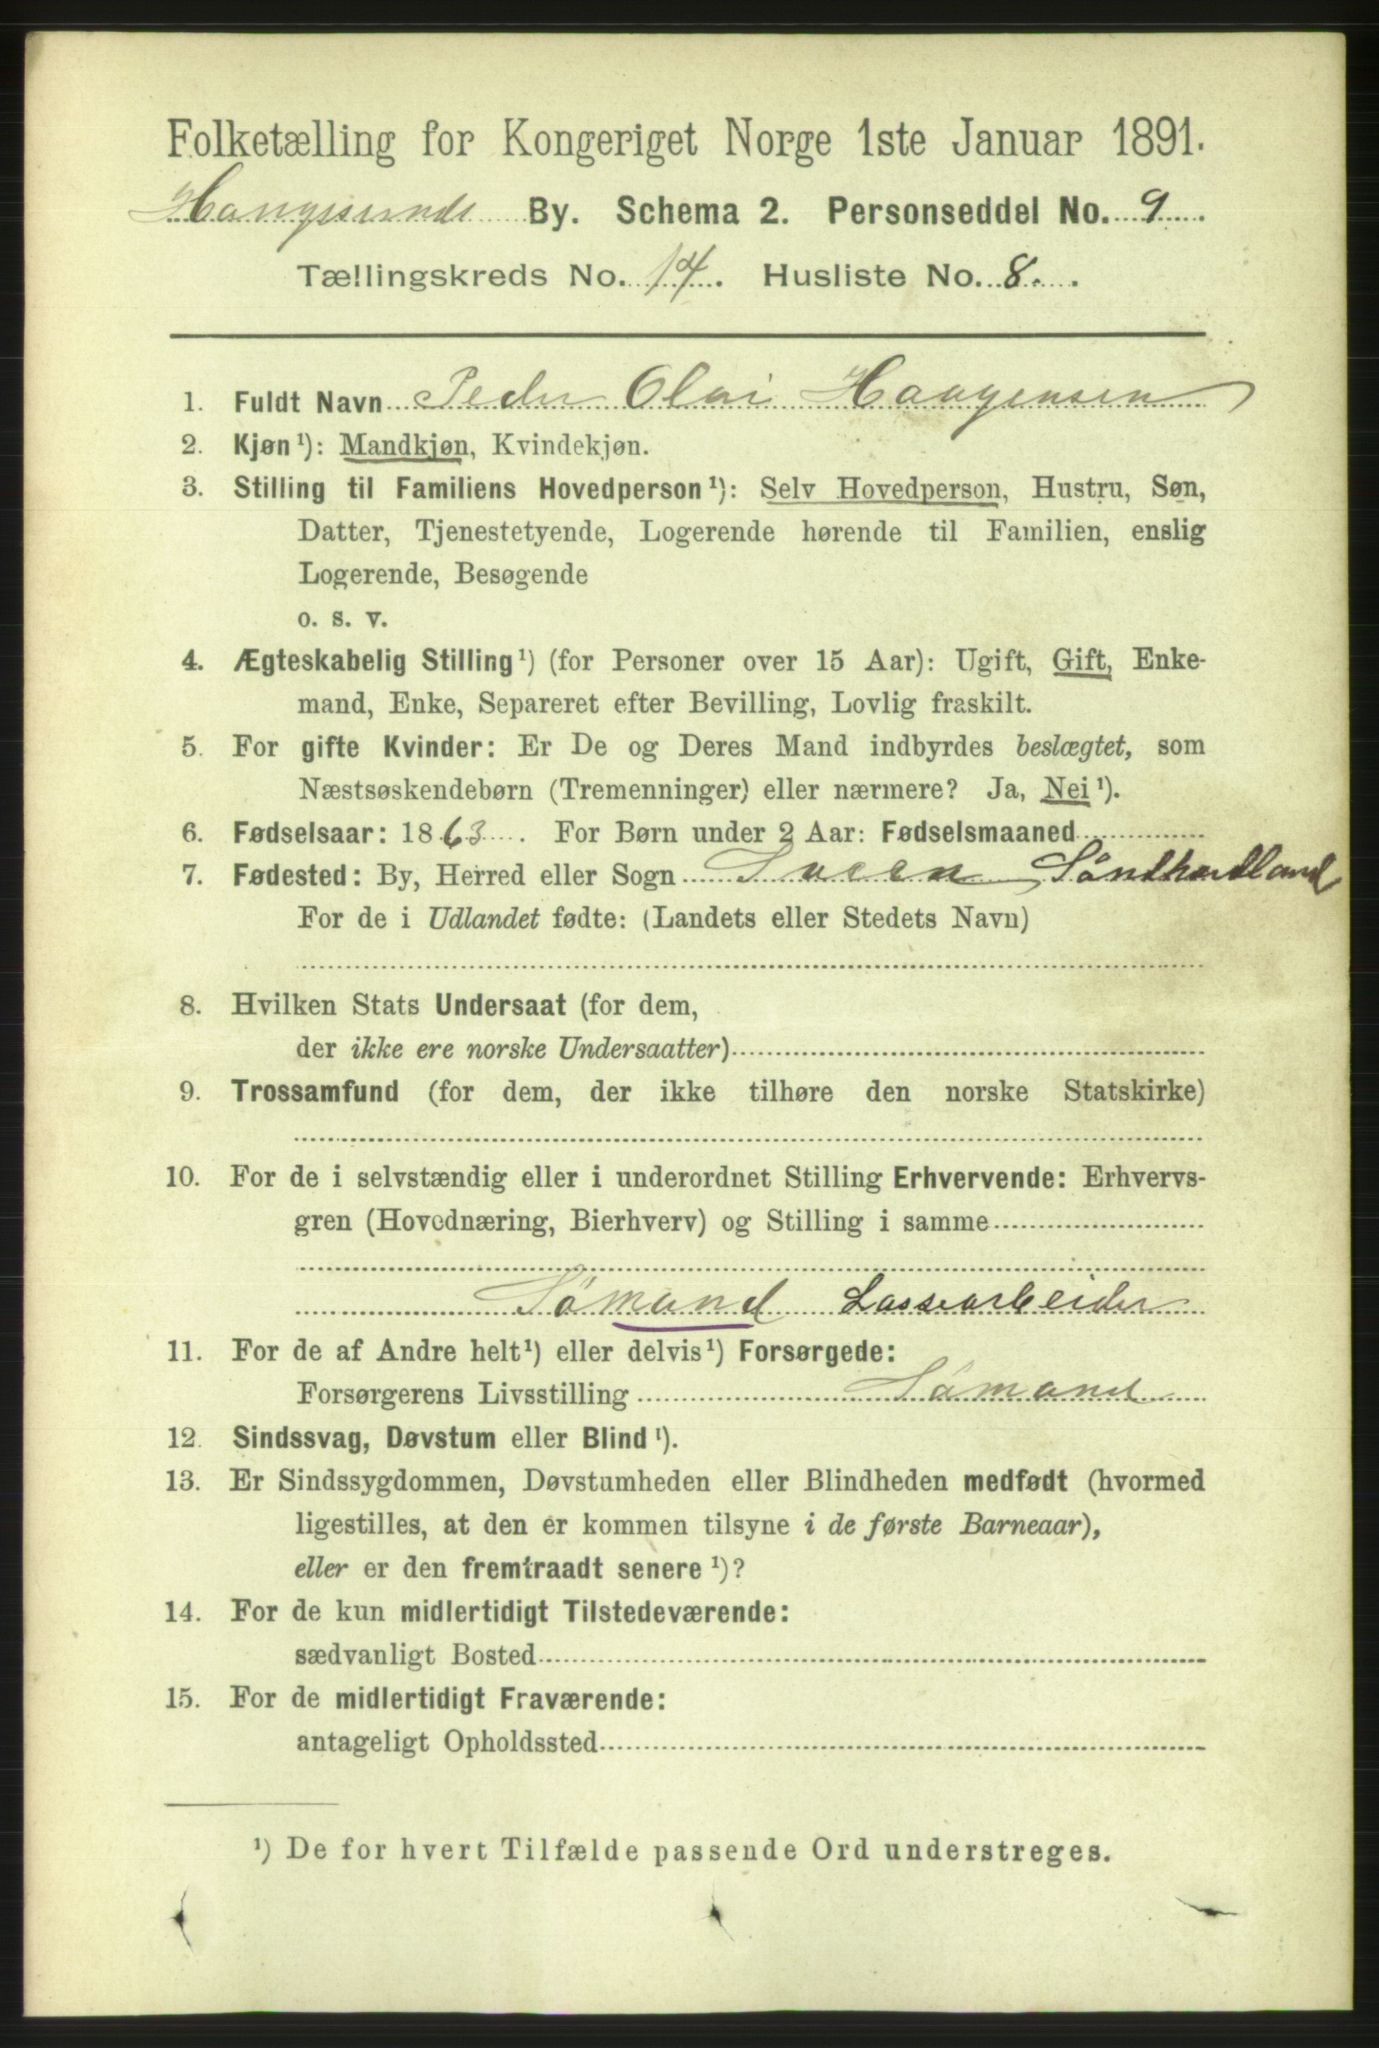 Folketælling for Kongeriget Norge 1ste Januar 1891.
Haugesunds By. Schema 2. Personseddel No. 9.
Tællingskreds No. 14. Husliste No. 8.
1. Fuldt Navn Peder Olai Haagensen
2. Kjøn ¹): Mandkjøn, Kvindekjøn.
3. Stilling til Familiens Hovedperson ¹): Selv Hovedperson, Hustru, Søn,
Datter, Tjenestetyende, Logerende hørende til Familien, enslig
Logerende, Besøgende
o. s. v.
4. Ægteskabelig Stilling ¹) (for Personer over 15 Aar): Ugift, Gift, Enke-
mand, Enke, Separeret efter Bevilling, Lovlig fraskilt.
5. For gifte Kvinder: Er De og Deres Mand indbyrdes beslægtet, som
Næstsøskendebørn (Tremenninger) eller nærmere? Ja, Nei ¹).
6. Fødselsaar: 1863. For Børn under 2 Aar: Fødselsmaaned
7. Fødested: By, Herred eller Sogn Sveen Søndhordland
For de i Udlandet fødte: (Landets eller Stedets Navn)
8. Hvilken Stats Undersaat (for dem,
der ikke ere norske Undersaatter)
9. Trossamfund (for dem, der ikke tilhøre den norske Statskirke)
10. For de i selvstændig eller i underordnet Stilling Erhvervende: Erhvervs-
gren (Hovednæring, Bierhverv) og Stilling i samme
Sømand Lossearbeider
11. For de af Andre helt ¹) eller delvis ¹) Forsørgede:
Forsørgerens Livsstilling Sømand
12. Sindssvag, Døvstum eller Blind ¹).
13. Er Sindssygdommen, Døvstumheden eller Blindheden medfødt (hvormed
ligestilles, at den er kommen tilsyne i de første Barneaar),
eller er den fremtraadt senere ¹)?
14. For de kun midlertidigt Tilstedeværende:
sædvanligt Bosted
15. For de midlertidigt Fraværende:
antageligt Opholdssted
¹) De for hvert Tilfælde passende Ord understreges.